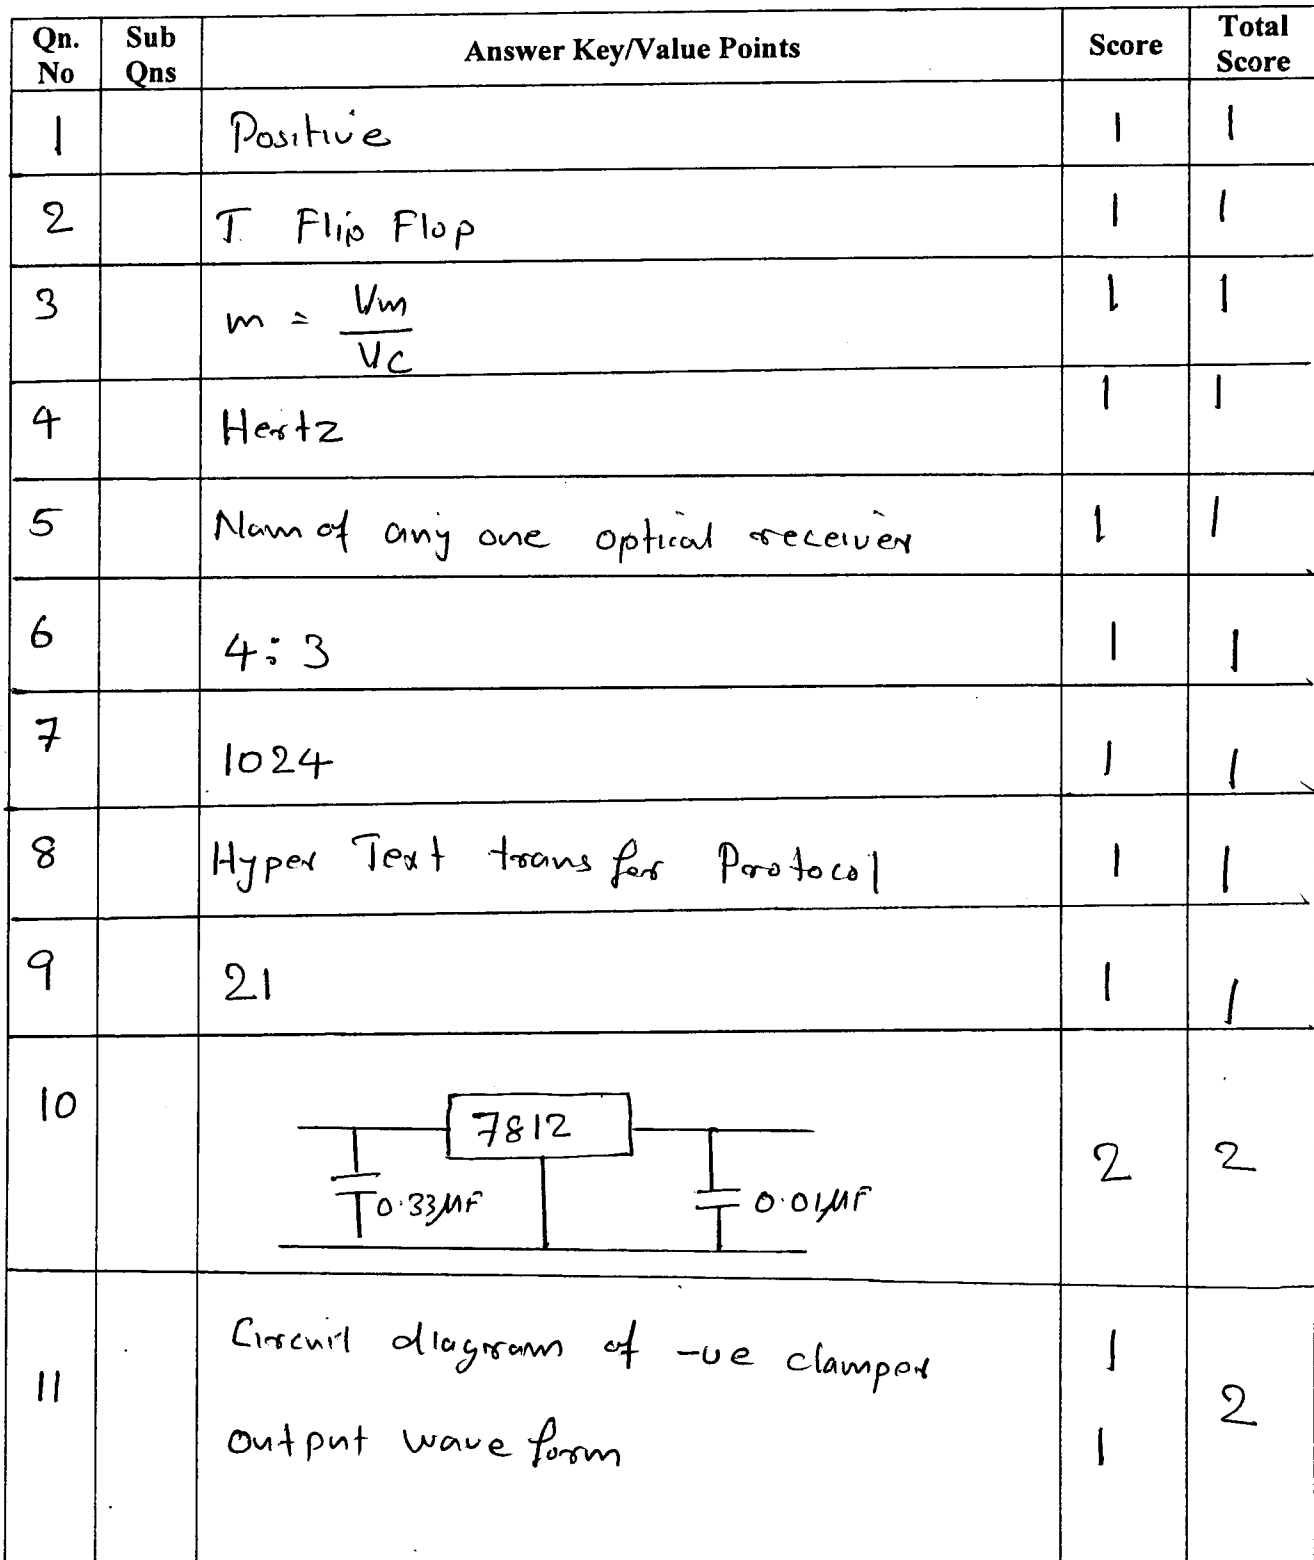 Qn. No Sub Qns Answer Key/Value Points Score Total Score
1 Positive 1 1
2 T Flip Flop 1 1
3 m = Vm / Vc 1 1
4 Hertz 1 1
5 Nam of any one optical receiver 1 1
6 4:3 1 1
7 1024 1 1
8 Hyper Text transfer Protocol 1 1
9 21 1 1
10 7812 2 2
0.33µF 0.01µF
11 Circuit diagram of -ve clamper 1 2
output wave form 1